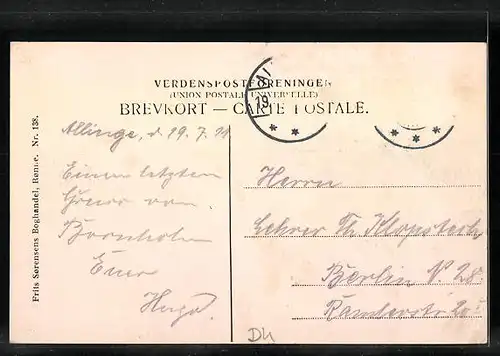 VERDENSPOSTFORENINGEN
(UNION POSTALE UNIVERSELLE)
BREVKORT — CARTE POSTALE.
Allinge, d 19.7.
Einen letzten
Gruss von
Bornholm
Euer
Hugo.
Herrn
Lehrer Th. Klopsteck
Berlin N 28.
Ramlerstr. 20
Frits Sørensens Boghandel, Rønne. Nr. 138.
19
DK